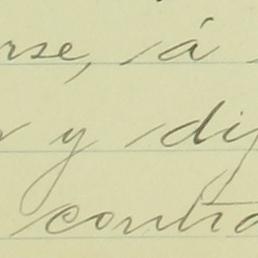 rse, á
y dij
contra